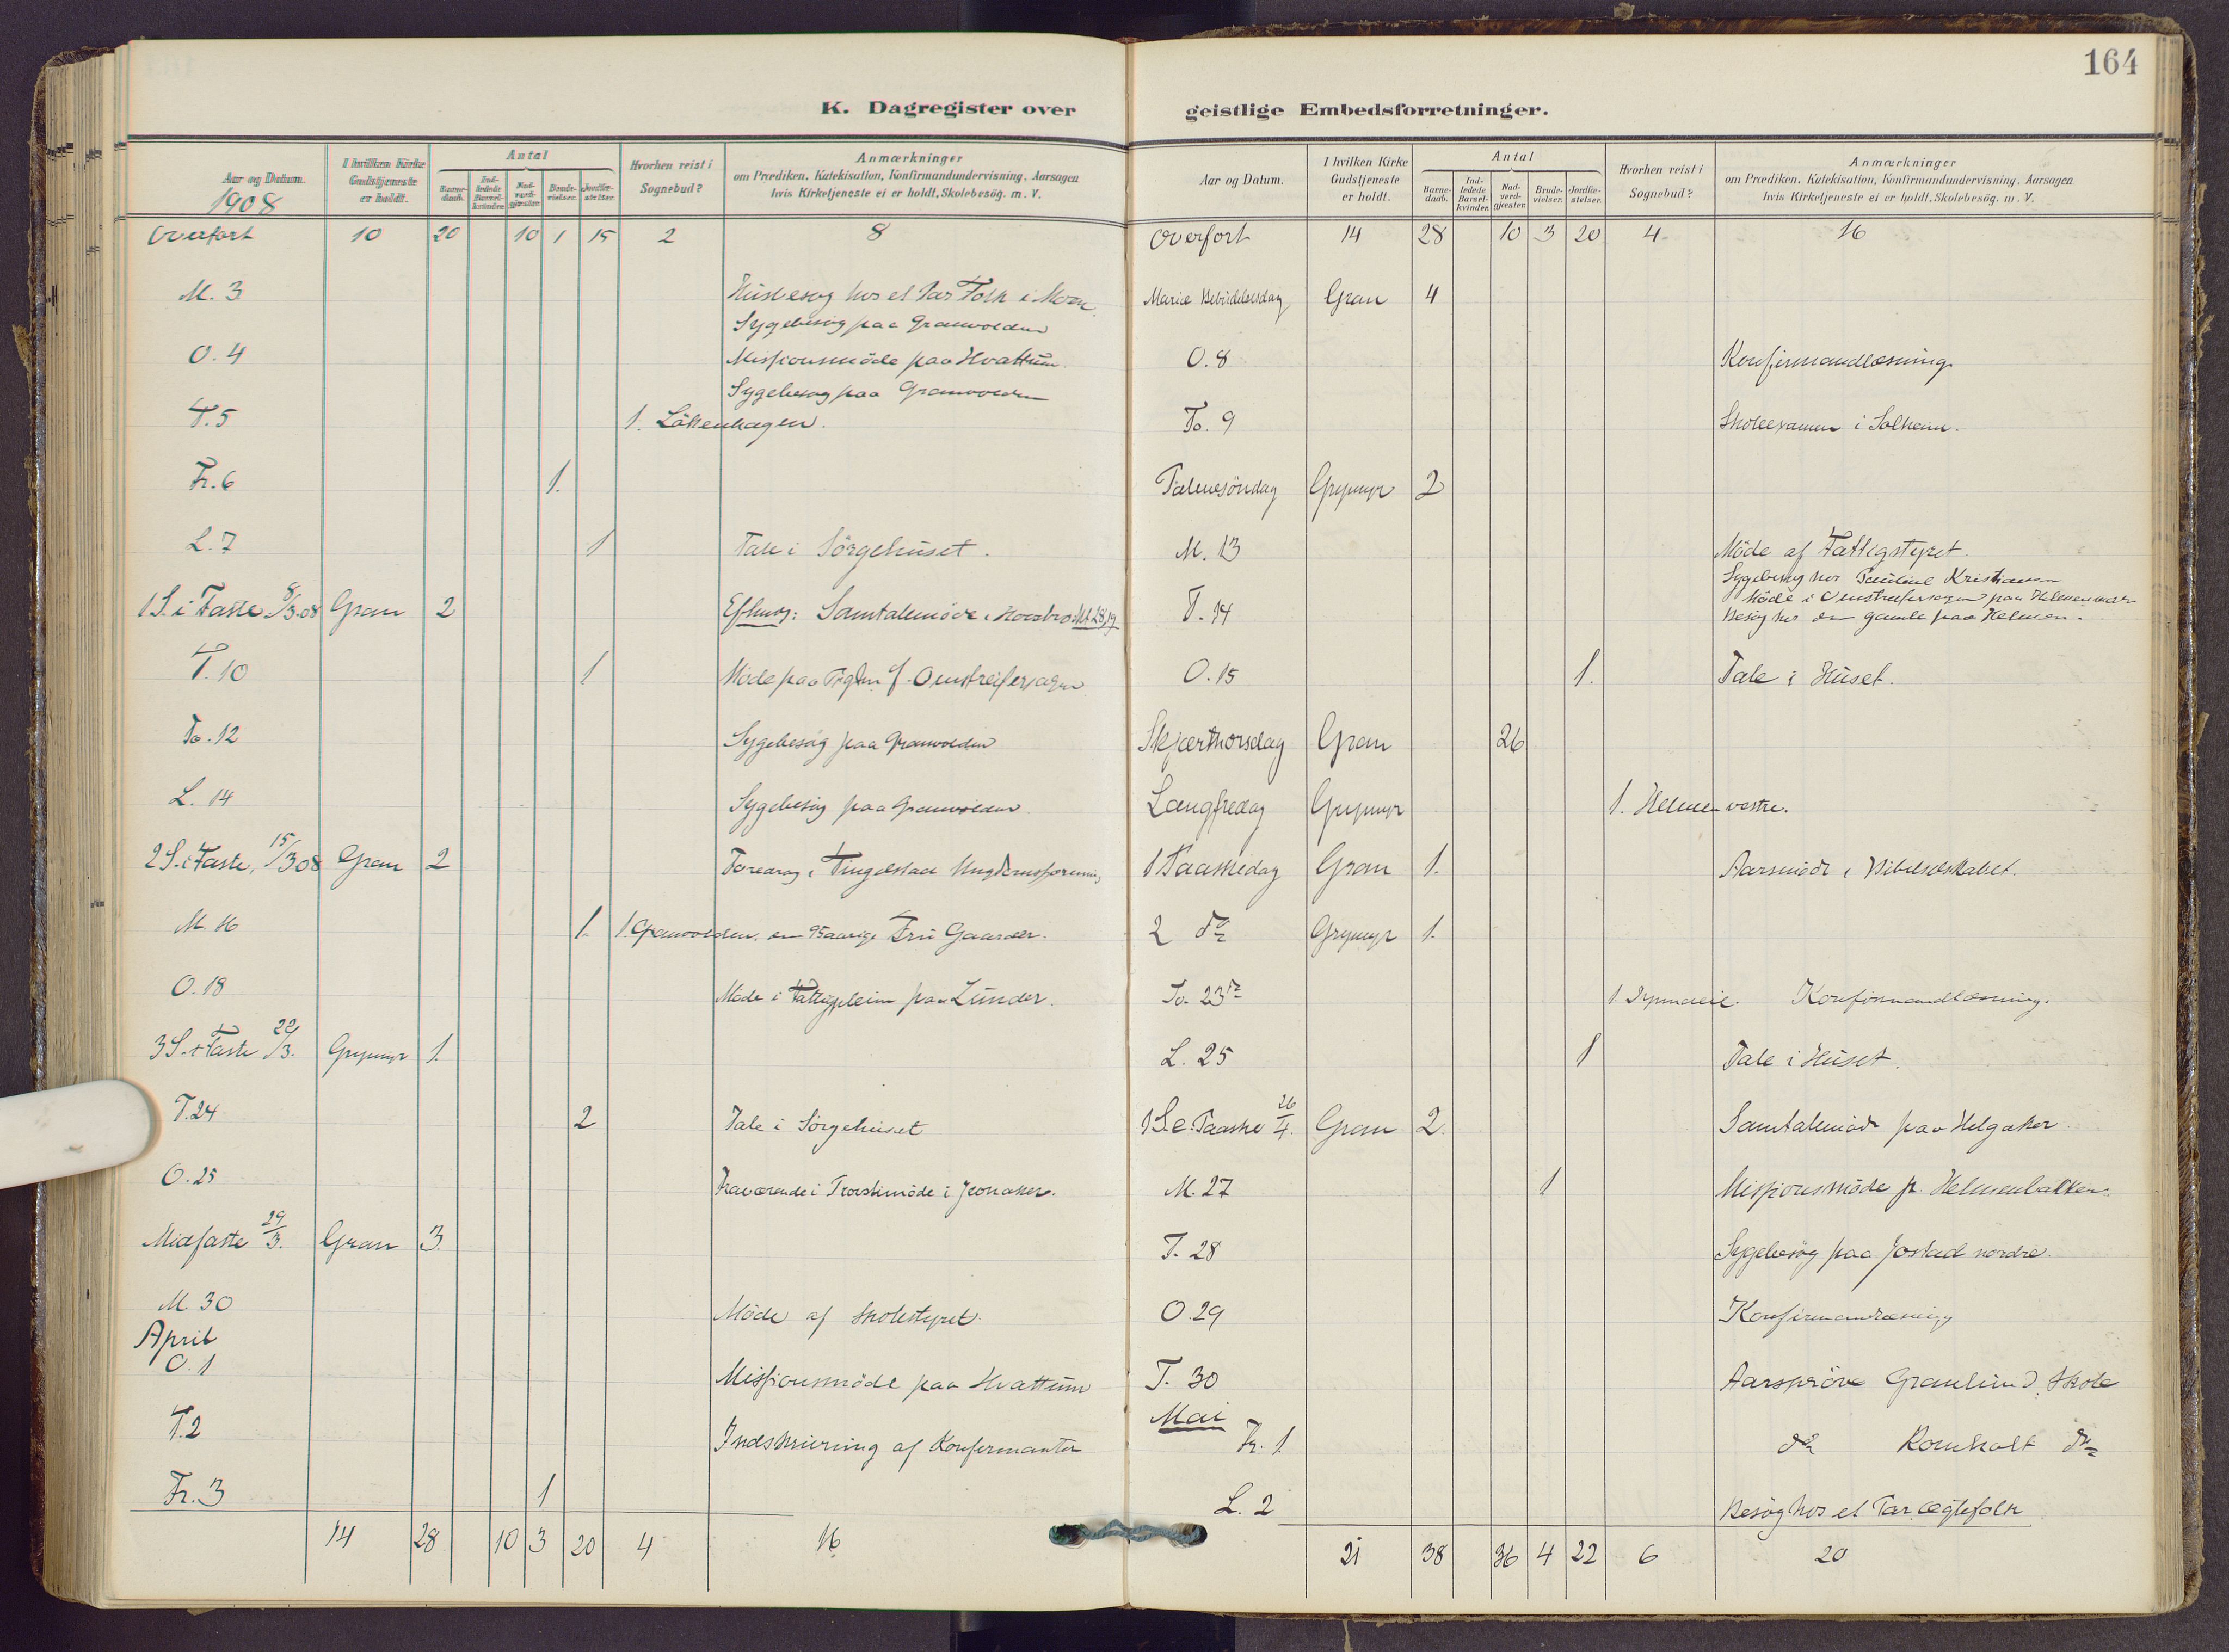 164
K. Dagregister over geistlige Embedsforretninger.
Aar og Datum. 1908 | I hvilken Kirke Gudstjeneste er holdt. | Antal: Barnedaab. | Indledede Barselkvinder. | Nadverdgjæster. | Brudevielser. | Jordfæstelser. | Hvorhen reist i Sognebud? | Anmærkninger om Prædiken, Katekisation, Konfirmandundervisning, Aarsagen hvis Kirketjeneste ei er holdt, Skolebesög. m. V.
Overført 10 20 10 1 15 2 8
M. 3 Husbesøg hos et Par Folk i Moen.
Sygebesög paa Granvolden
O. 4 Missionsmöde paa Hvattum.
Sygebesøg paa Granvolden
T. 5 1. Løkenhagen.
Fr. 6 1.
L. 7 1 Tale i Sörgehuset.
1 S. i Faste 8/3.08 Gran 2 Efterm: Samtalemöde i Mt 28,19
T. 10 1 Möde paa f. Omstreifersagen
To. 12 Sygebesög paa Granvolden
L. 14 Sygebesög paa Granvolden.
2 S. i Faste, 15/3 08 Gran 2 Foredrag i Tingelstad Ungdomsforening
M. 16 1. 1. Granvolden. en 95aarige Fru Gaarder.
O. 18 Möde i paa Lunder.
3 S. i Faste 22/3. Grymyr 1.
T. 24 2 Tale i Sörgehuset
O. 25 Fraværende i Provstimöde i Jevnaker.
Midfaste 29/3. Gran 3.
M. 30 Möde af Skolestyret.
April
O. 1 Missionsmöde paa Hvattum
T. 2 Indskrivning af Konfirmanter
Fr. 3 1
14 28 10 3 20 4 16
Aar og Datum. | I hvilken Kirke Gudstjeneste er holdt. | Antal: Barnedaab. | Indledede Barselkvinder. | Nadverdgjæster. | Brudevielser. | Jordfæstelser. | Hvorhen reist i Sognebud? | Anmærkninger om Prædiken, Katekisation, Konfirmandundervisning, Aarsagen hvis Kirketjeneste ei er holdt, Skolebesög. m. V.
Overført 14 28 10 3 20 4 16
Mariæ Bebudelsesdag Gran 4
O. 8 Konfirmandlæsning
To. 9 Skoleexamen i Solheim.
Palmesöndag Grymyr 2
M. 13 Möde af Fattigstyret.
Sygebesög hos Pauline Kristiansen
T. 14 Möde i Omstreifersagen paa
Besög hos de gamle paa Helmen.
O. 15 1. Tale i Huset.
Skjærthorsdag Gran 26
Langfredag Grymyr 1. Helmen vestre.
1 Paaskedag Gran 1. Aarsmöde i Bibelselskabet.
2 do Grymyr 1.
To. 23de 1. Konfirmandlæsning.
L. 25 1 Tale i Huset.
1 S. e. Paaske 26/4. Gran 2. Samtalemöde paa Helgaker.
M. 27 1 Missionsmöde p. Helmenbakken.
T. 28 Sygebesög paa Jostad nordre.
O. 29 Konfirmandlæsning
T. 30 Aarspröve Granlund Skole
Mai
Fr. 1 do Romholt do
L. 2 Besög hos et Par ægtefolk
21 38 36 4 22 6 20